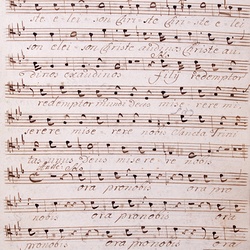 ste e lei son Chri ste Christe e lei
son elei son Christe audi nos Christe au
di nos exaudi nos Fily redemptor
redemptor mundi Deus mise rere mi
serere mise rere nobis Sancta Trini
tas unus Deus miserere nobis
ora pro nobis ora pro
nobis ora pro nobis
ora pro nobis ora